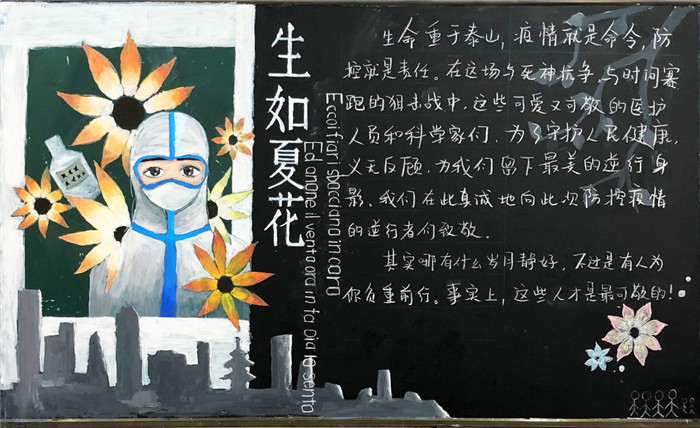 生如夏花
Eccoi fiari spacciano in cara
Ed anche il vento ora in ta Dia la senta
生命重于泰山，疫情就是命令，防
控就是责任。在这场与死神抗争、与时间赛
跑的狙击战中，这些可爱又可敬的医护
人员和科学家们，为了守护人民健康，
义无反顾，为我们留下最美的逆行身
影。我们在此真诚地向此次防控疫情
的逆行者们致敬。
其实哪有什么岁月静好，不过是有人为
你负重前行。事实上，这些人才是最可敬的！